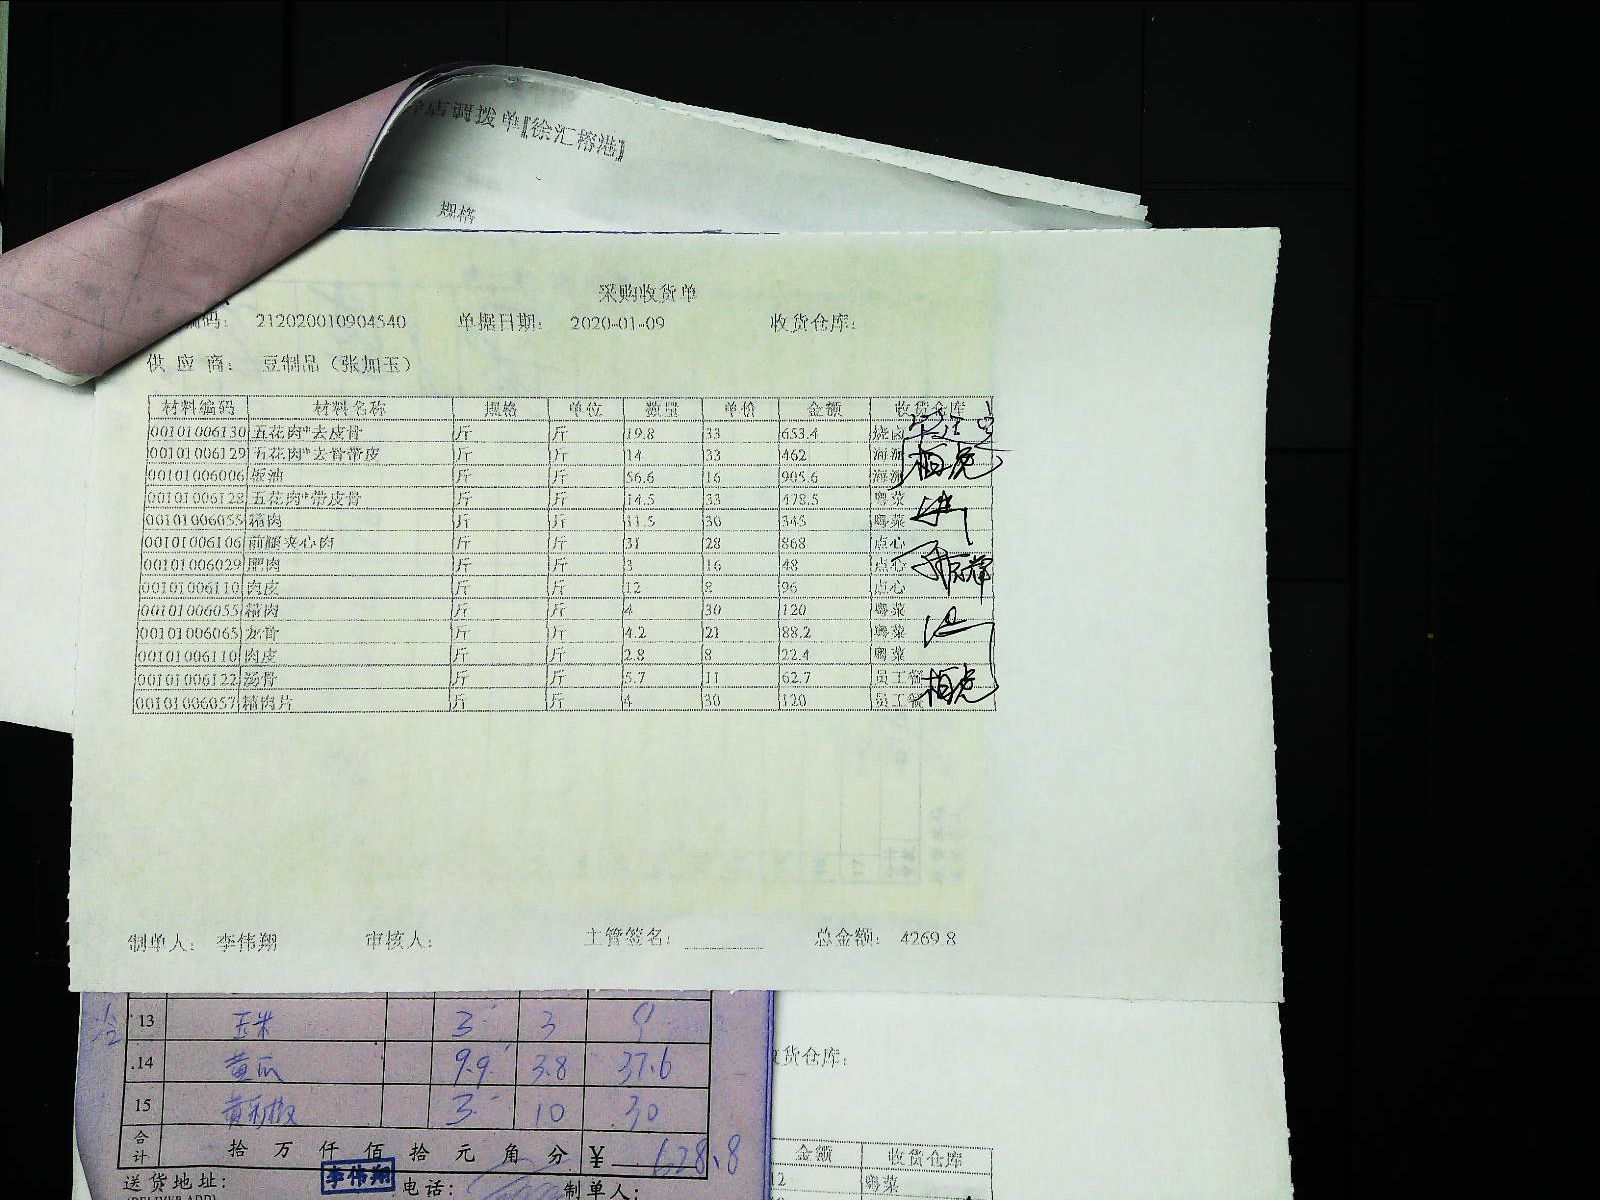 店调拨单【徐汇榕港】
规格
采购收货单
编码： 212020010904540 单据日期： 2020-01-09 收货仓库：
供 应 商： 豆制品（张加玉）
材料编码 材料名称 规格 单位 数量 单价 金额 收货仓库
00101006130 五花肉*去皮骨 斤 斤 19.8 33 653.4 烧卤
00101006129 五花肉*去骨带皮 斤 斤 14 33 462 海派
00101006006 板油 斤 斤 56.6 16 905.6 海派
00101006128 五花肉*带皮骨 斤 斤 14.5 33 478.5 粤菜
00101006055 精肉 斤 斤 11.5 30 345 粤菜
00101006106 前腿夹心肉 斤 斤 31 28 868 点心
00101006029 肥肉 斤 斤 3 16 48 点心
00101006110 肉皮 斤 斤 12 8 96 点心
00101006055 精肉 斤 斤 4 30 120 粤菜
00101006065 龙骨 斤 斤 4.2 21 88.2 粤菜
00101006110 肉皮 斤 斤 2.8 8 22.4 粤菜
00101006122 汤骨 斤 斤 5.7 11 62.7 员工餐
00101006057 精肉片 斤 斤 4 30 120 员工餐
制单人： 李伟翔 审核人： 主管签名： 总金额： 4269.8
13 玉米 3 3 9
14 黄瓜 9.9 3.8 37.6
15 黄彩椒 3 10 30
合计 拾 万 仟 佰 拾 元 角 分 ¥ 628.8
送货地址： 李伟翔 电话： 制单人：
收货仓库：
金额 收货仓库
12 粤菜